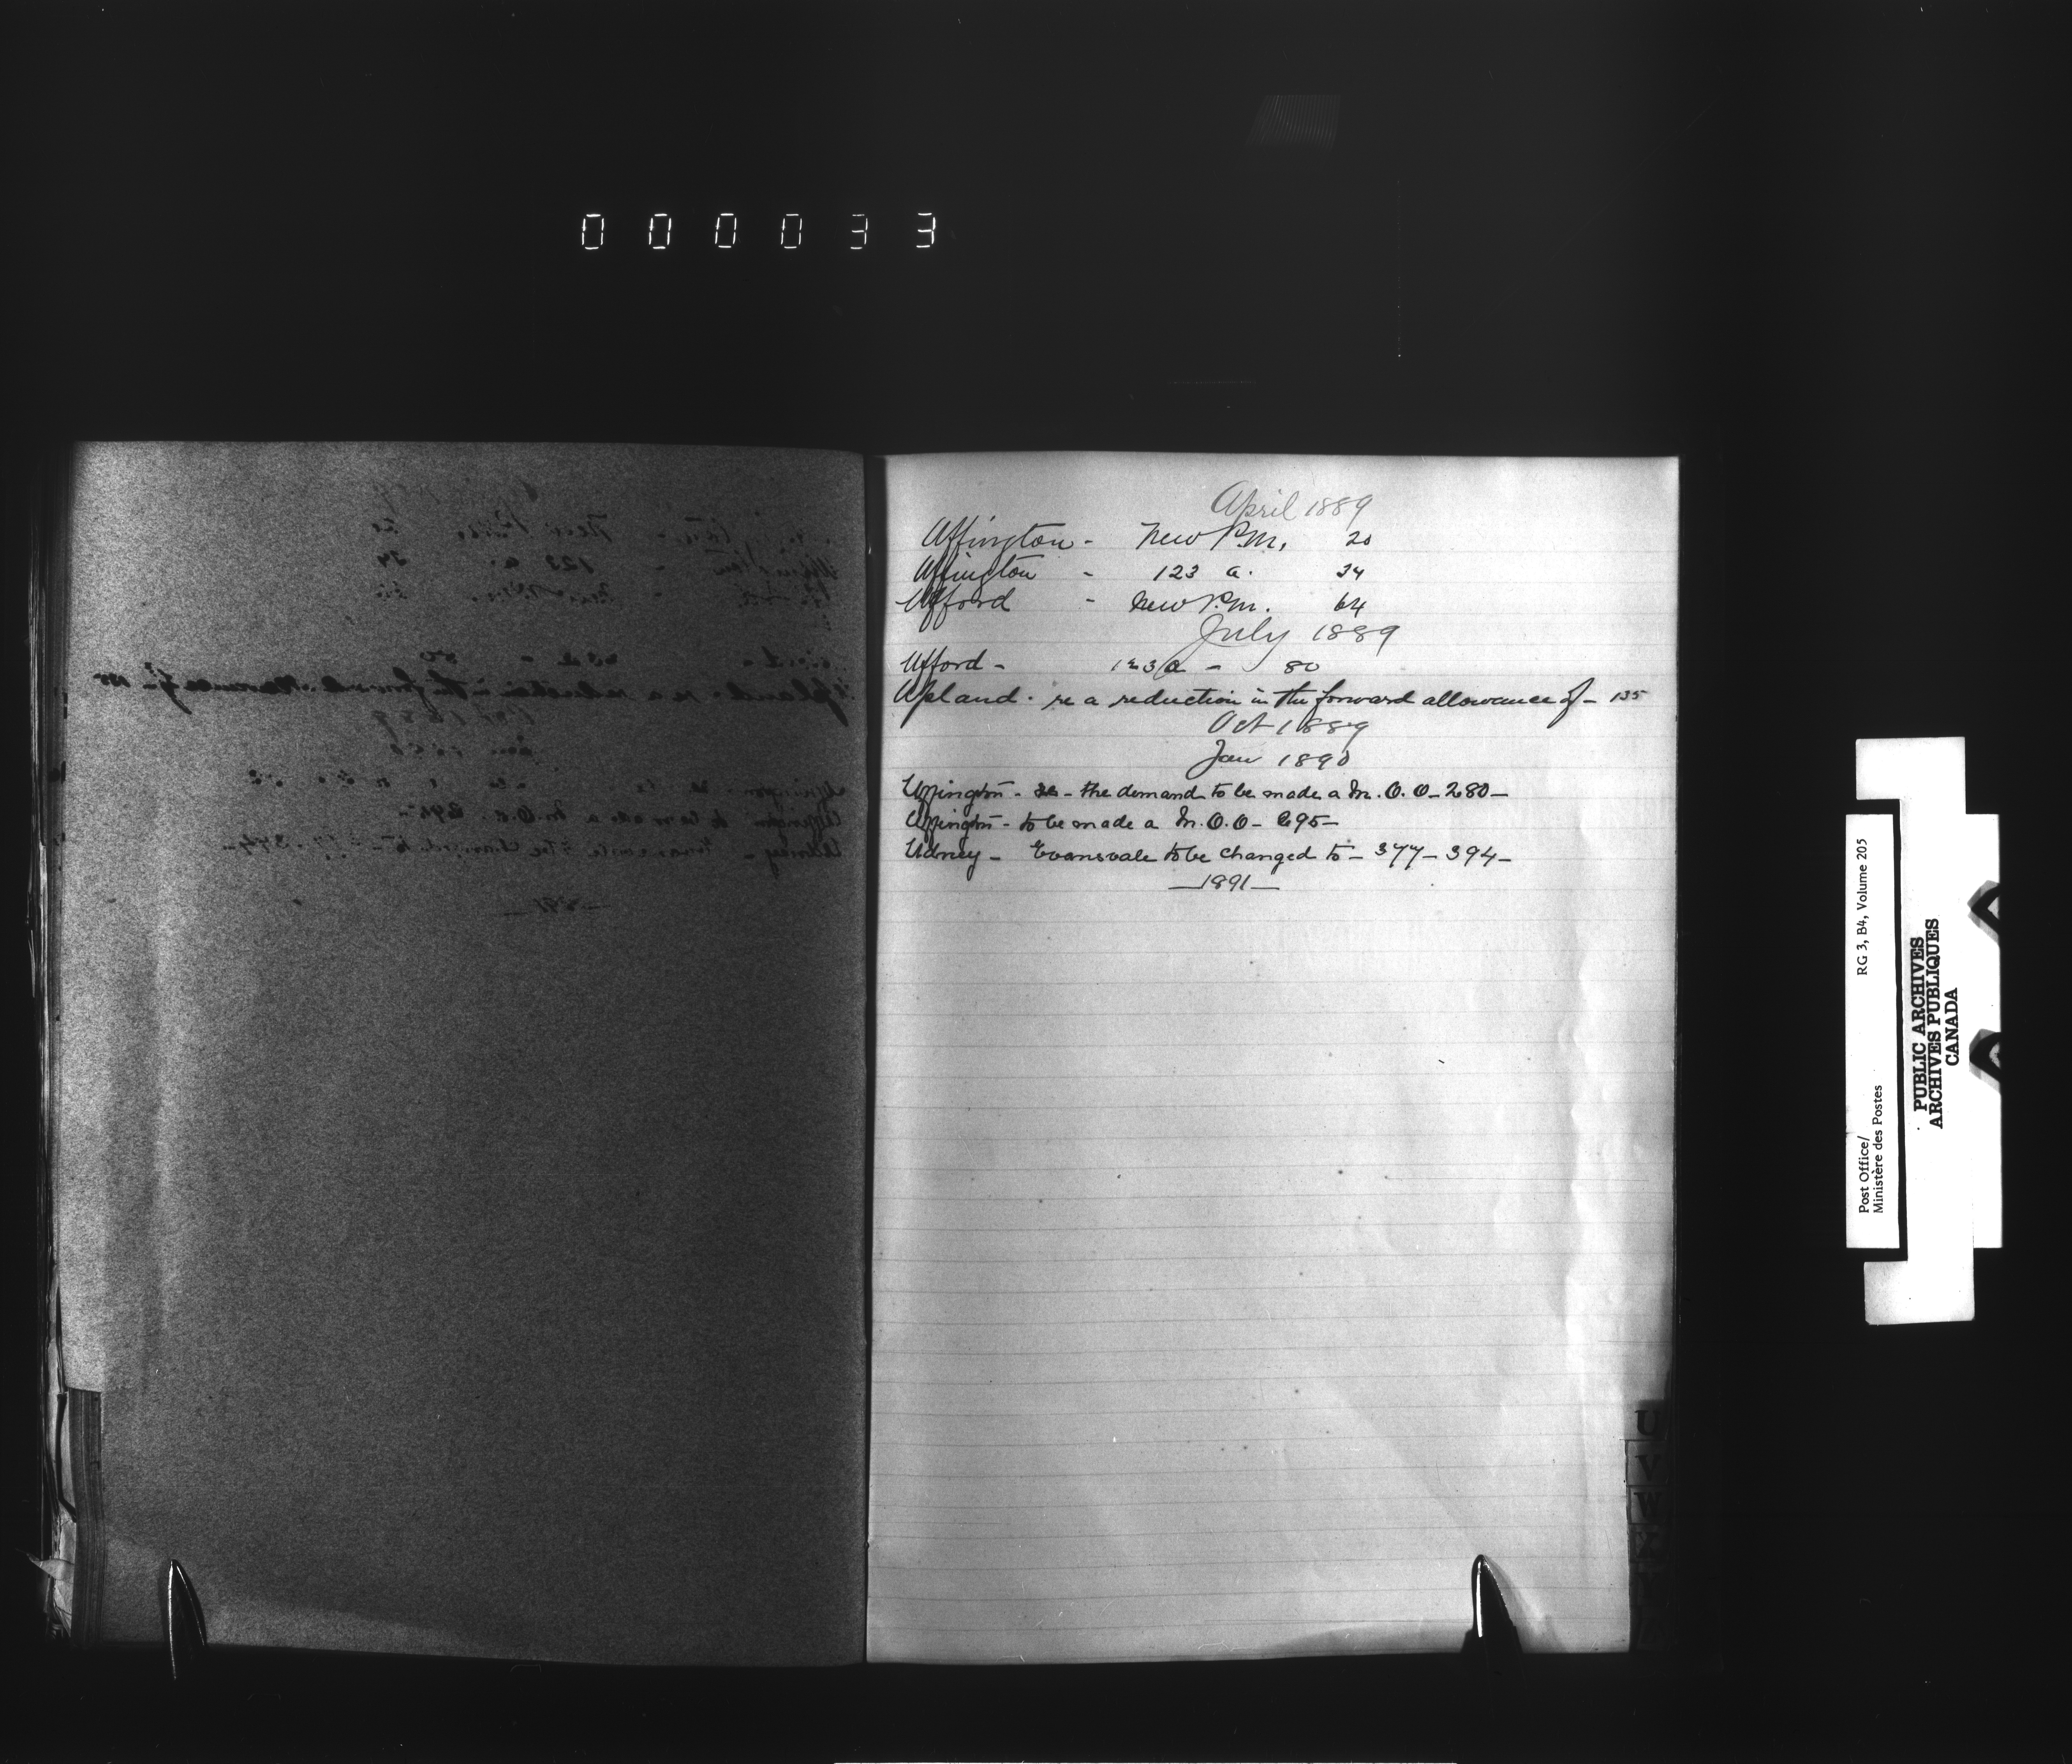 000033
April 1889
Uffington - New P.M. 20
Uffington - 123 a. 34
Ufford - New P.M. 64
July 1889
Ufford - 123 a - 80
Upland. re a reduction in the forward allowance of - 135
Oct 1889
Jan 1890
Uffington - re - the demand to be made a M.O.O - 280 -
Uffington - to be made a M.O.O - 295 -
Udney - Evansvale to be changed to - 377 - 394 -
- 1891 -
U
V
W
RG 3, B4, Volume 205
Post Office/
Ministère des Postes
PUBLIC ARCHIVES
ARCHIVES PUBLIQUES
CANADA